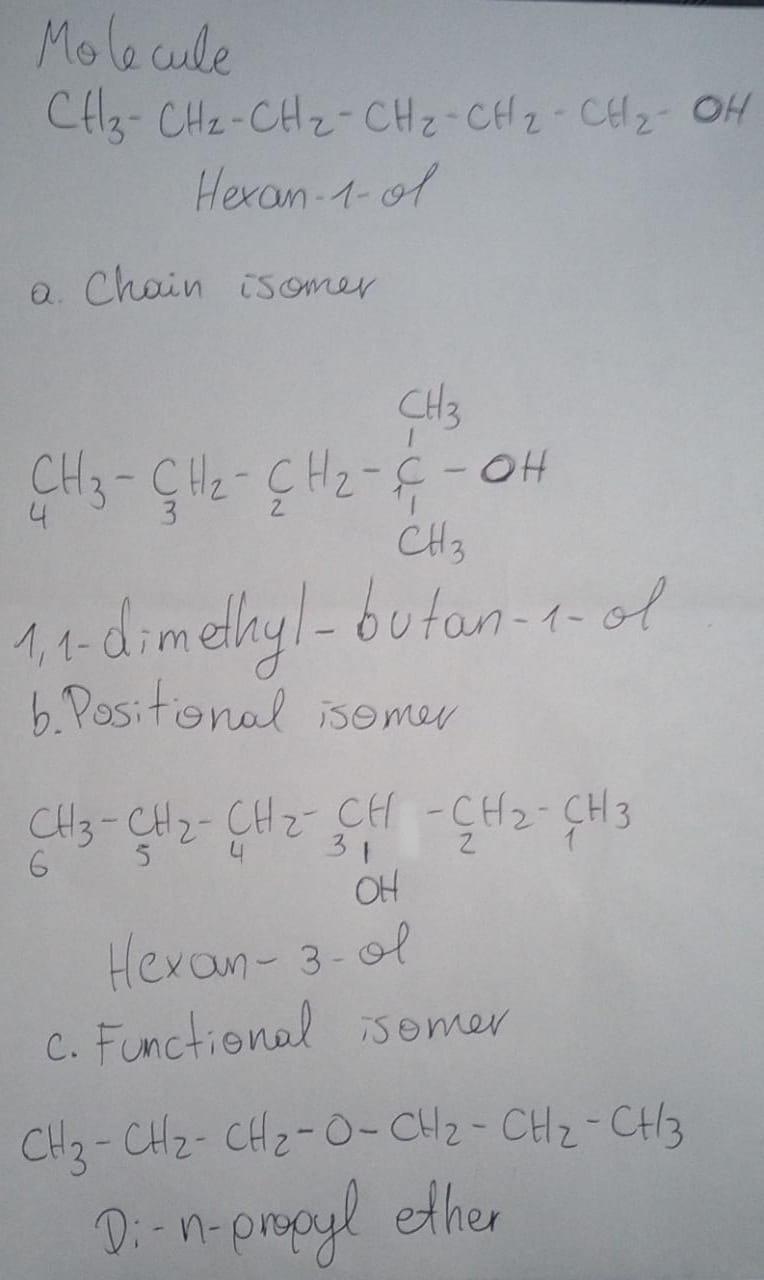 Molecule
CH3-CH2-CH2-CH2-CH2-CH2-OH
Hexan-1-ol
a. Chain isomer
CH3
CH3-CH2-CH2-C-OH
4 3 2 1
CH3
1,1-dimethyl-butan-1-ol
b. Positional isomer
CH3-CH2-CH2-CH-CH2-CH3
6 5 4 3 2 1
OH
Hexan-3-ol
c. Functional isomer
CH3-CH2-CH2-O-CH2-CH2-CH3
Di-n-propyl ether